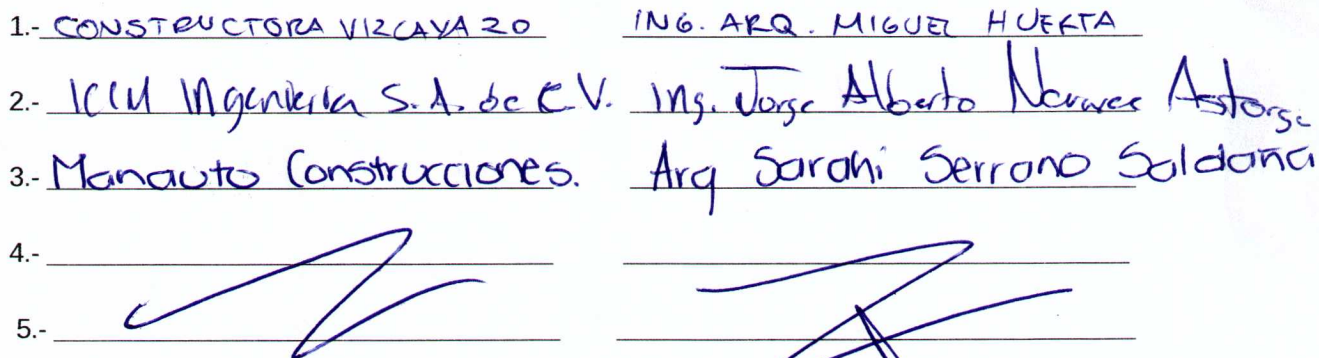 1.- CONSTRUCTORA VIZCAYA 20 ING. ARQ. MIGUEL HUERTA
2.- ICIM Ingenieria S.A. de C.V. Ing. Jorge Alberto Astorga
3.- Manauto Construcciones. Arq Sarahi Serrano Saldaña
4.-
5.-